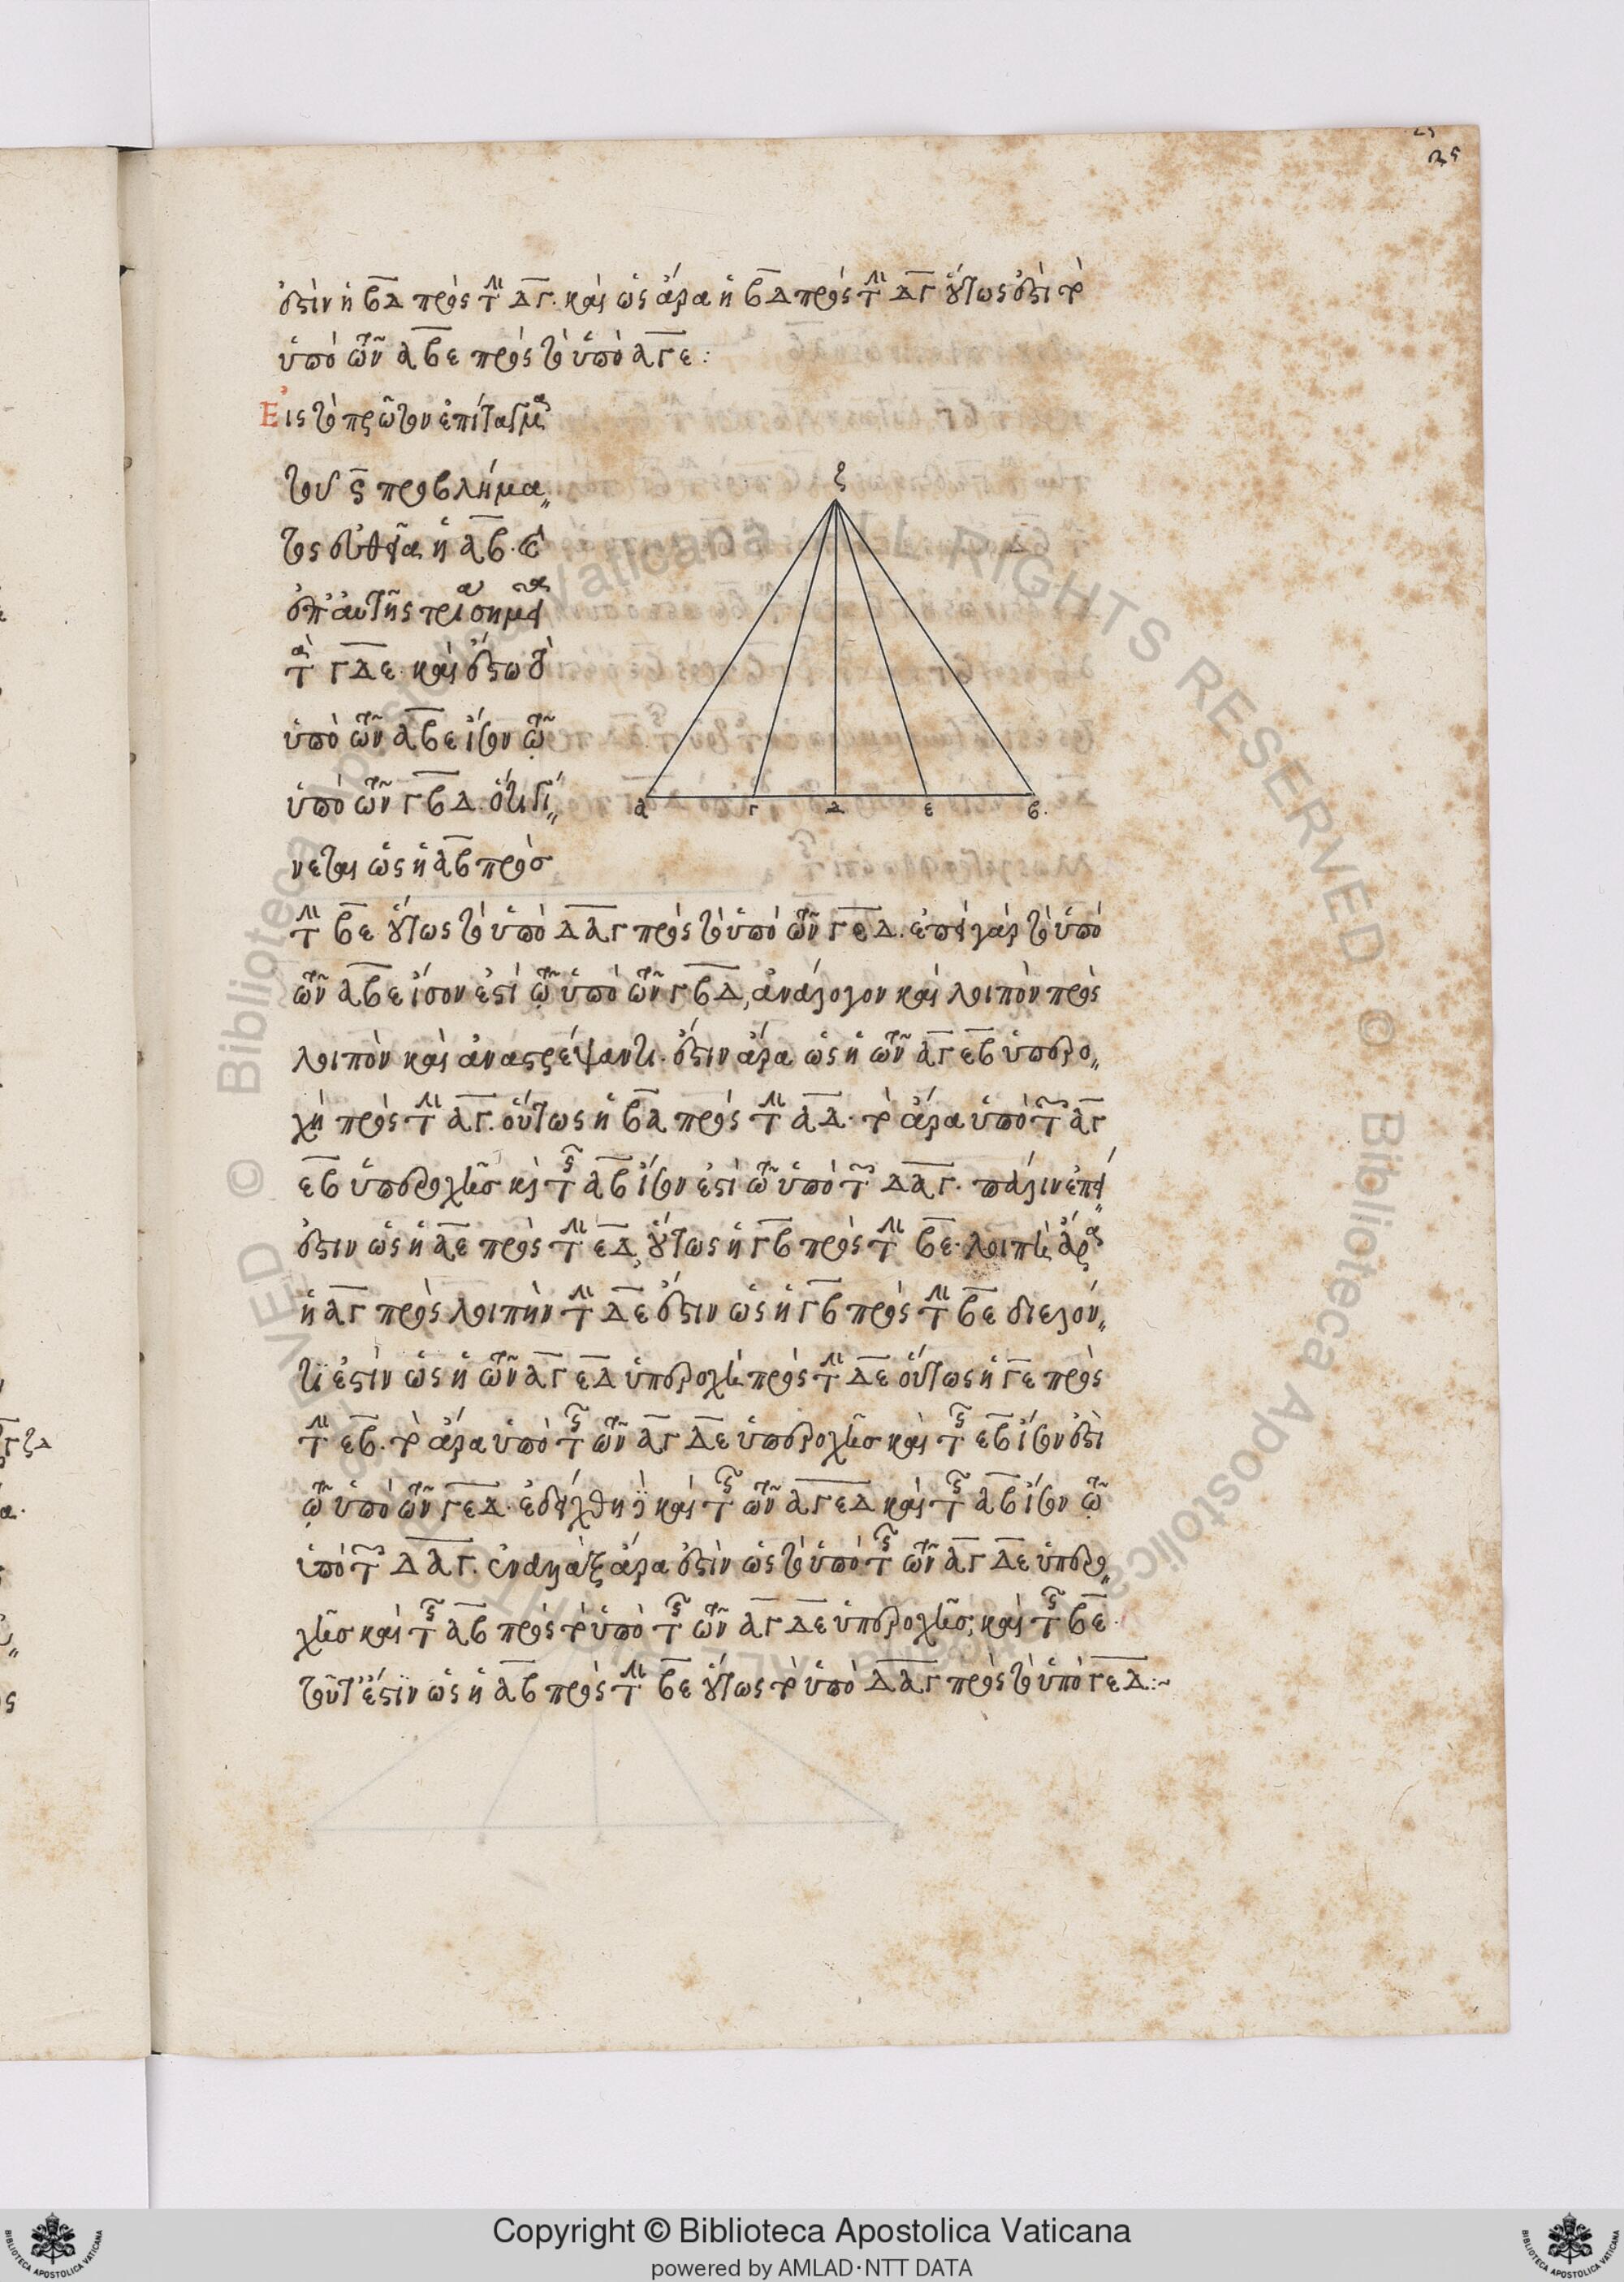 25
ἐστὶν ἡ ΒΔ πρὸς τὴν ΔΓ. καὶ ὡς ἄρα ἡ ΒΔ πρὸς τὴν ΔΓ οὕτως ἐστὶ τὸ
ὑπὸ τῶν ΑΒΕ πρὸς τὸ ὑπὸ ΑΓΕ :
Εἰς τὸ πρῶτον ἐπίταγμα
τοῦ ϛ προβλήμα
τος εὐθεῖα ἡ ΑΒ. καὶ
ἐπ' αὐτῆς τρία σημεῖα
τὰ ΓΔΕ. καὶ ἔστω τὸ
ὑπὸ τῶν ΑΒΕ ἴσον τῷ
ὑπὸ τῶν ΓΒΔ. ὅτι γί
νεται ὡς ἡ ΑΒ πρὸσ
τὴν ΒΕ οὕτως τὸ ὑπὸ ΔΑΓ πρὸς τὸ ὑπὸ τῶν ΓΕΔ. ἐπεὶ γὰρ τὸ ὑπὸ
τῶν ΑΒΕ ἴσον ἐστὶ τῷ ὑπὸ τῶν ΓΒΔ, ἀνάλογον καὶ λοιπὸν πρὸς
λοιπὸν καὶ ἀναστρέψαντι. ἔστιν ἄρα ὡς ἡ τῶν ΑΓ ΕΒ ὑπερο
χὴ πρὸς τὴν ΑΓ. οὕτως ἡ ΒΑ πρὸς τὴν ΑΔ. τὸ ἄρα ὑπὸ τῆς ΑΓ
ΕΒ ὑπεροχῆσ καὶ τῆς ΑΒ ἴσον ἐστὶ τῷ ὑπὸ τῶν ΔΑΓ. πάλιν ἐπεί
ἐστιν ὡς ἡ ΑΕ πρὸς τὴν ΕΔ, οὕτως ἡ ΓΒ πρὸς τὴν ΒΕ. λοιπὴ ἄρα
ἡ ΑΓ πρὸς λοιπὴν τὴν ΔΕ ἔστιν ὡς ἡ ΓΒ πρὸς τὴν ΒΕ διελόν
τι ἐστὶν ὡς ἡ τῶν ΑΓ ΕΔ ὑπεροχὴ πρὸς τὴν ΔΕ οὕτως ἡ ΓΕ πρὸς
τὴν ΕΒ. τὸ ἄρα ὑπὸ τῆς τῶν ΑΓ ΔΕ ὑπεροχῆσ καὶ τῆς ΕΒ ἴσον ἐστὶ
τῷ ὑπὸ τῶν ΓΕΔ. ἐδείχθη καὶ τῆς τῶν ΑΓΕΔ καὶ τῆς ΑΒ ἴσον τῷ
ὑπὸ τῶν ΔΑΓ. ἐναλλὰξ ἄρα ἐστὶν ὡς τὸ ὑπὸ τῆς τῶν ΑΓ ΔΕ ὑπερο
χῆσ καὶ τῆς ΑΒ πρὸς τὸ ὑπὸ τῆς τῶν ΑΓ ΔΕ ὑπεροχῆσ, καὶ τῆς ΒΕ.
τουτέστιν ὡς ἡ ΑΒ πρὸς τὴν ΒΕ οὕτως τὸ ὑπὸ ΔΑΓ πρὸς τὸ ὑπὸ ΓΕΔ :~
ζ
α γ δ ε β.
Copyright © Biblioteca Apostolica Vaticana
powered by AMLAD·NTT DATA